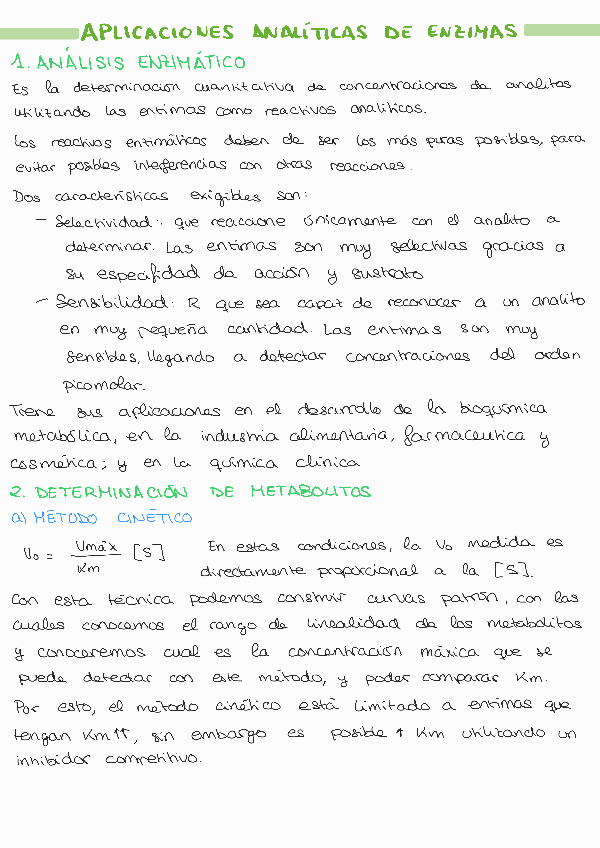 APLICACIONES ANALÍTICAS DE ENZIMAS
1. ANÁLISIS ENZIMÁTICO
Es la determinación cuantitativa de concentraciones de analitos
utilizando las enzimas como reactivos analíticos.
Los reactivos enzimáticos deben de ser los más puros posibles, para
evitar posibles interferencias con otras reacciones.
Dos características exigibles son:
- Selectividad: que reaccione únicamente con el analito a
determinar. Las enzimas son muy selectivas gracias a
su especifidad de acción y sustrato
- Sensibilidad: R que sea capaz de reconocer a un analito
en muy pequeña cantidad. Las enzimas son muy
sensibles, llegando a detectar concentraciones del orden
picomolar.
Tiene sus aplicaciones en el desarrollo de la bioquímica
metabólica, en la industria alimentaria, farmaceutica y
cosmética; y en la química clínica
2. DETERMINACIÓN DE METABOLITOS
a) MÉTODO CINÉTICO
Vo = Vmáx / Km [S] En estas condiciones, la Vo medida es
directamente proporcional a la [S].
Con esta técnica podemos construir curvas patrón, con las
cuales conocemos el rango de linealidad de los metabolitos
y conoceremos cual es la concentración máxica que se
puede detectar con este método, y poder comparar Km.
Por esto, el método cinético está limitado a enzimas que
tengan Km↑↑, sin embargo es posible ↑ Km utilizando un
inhibidor competitivo.